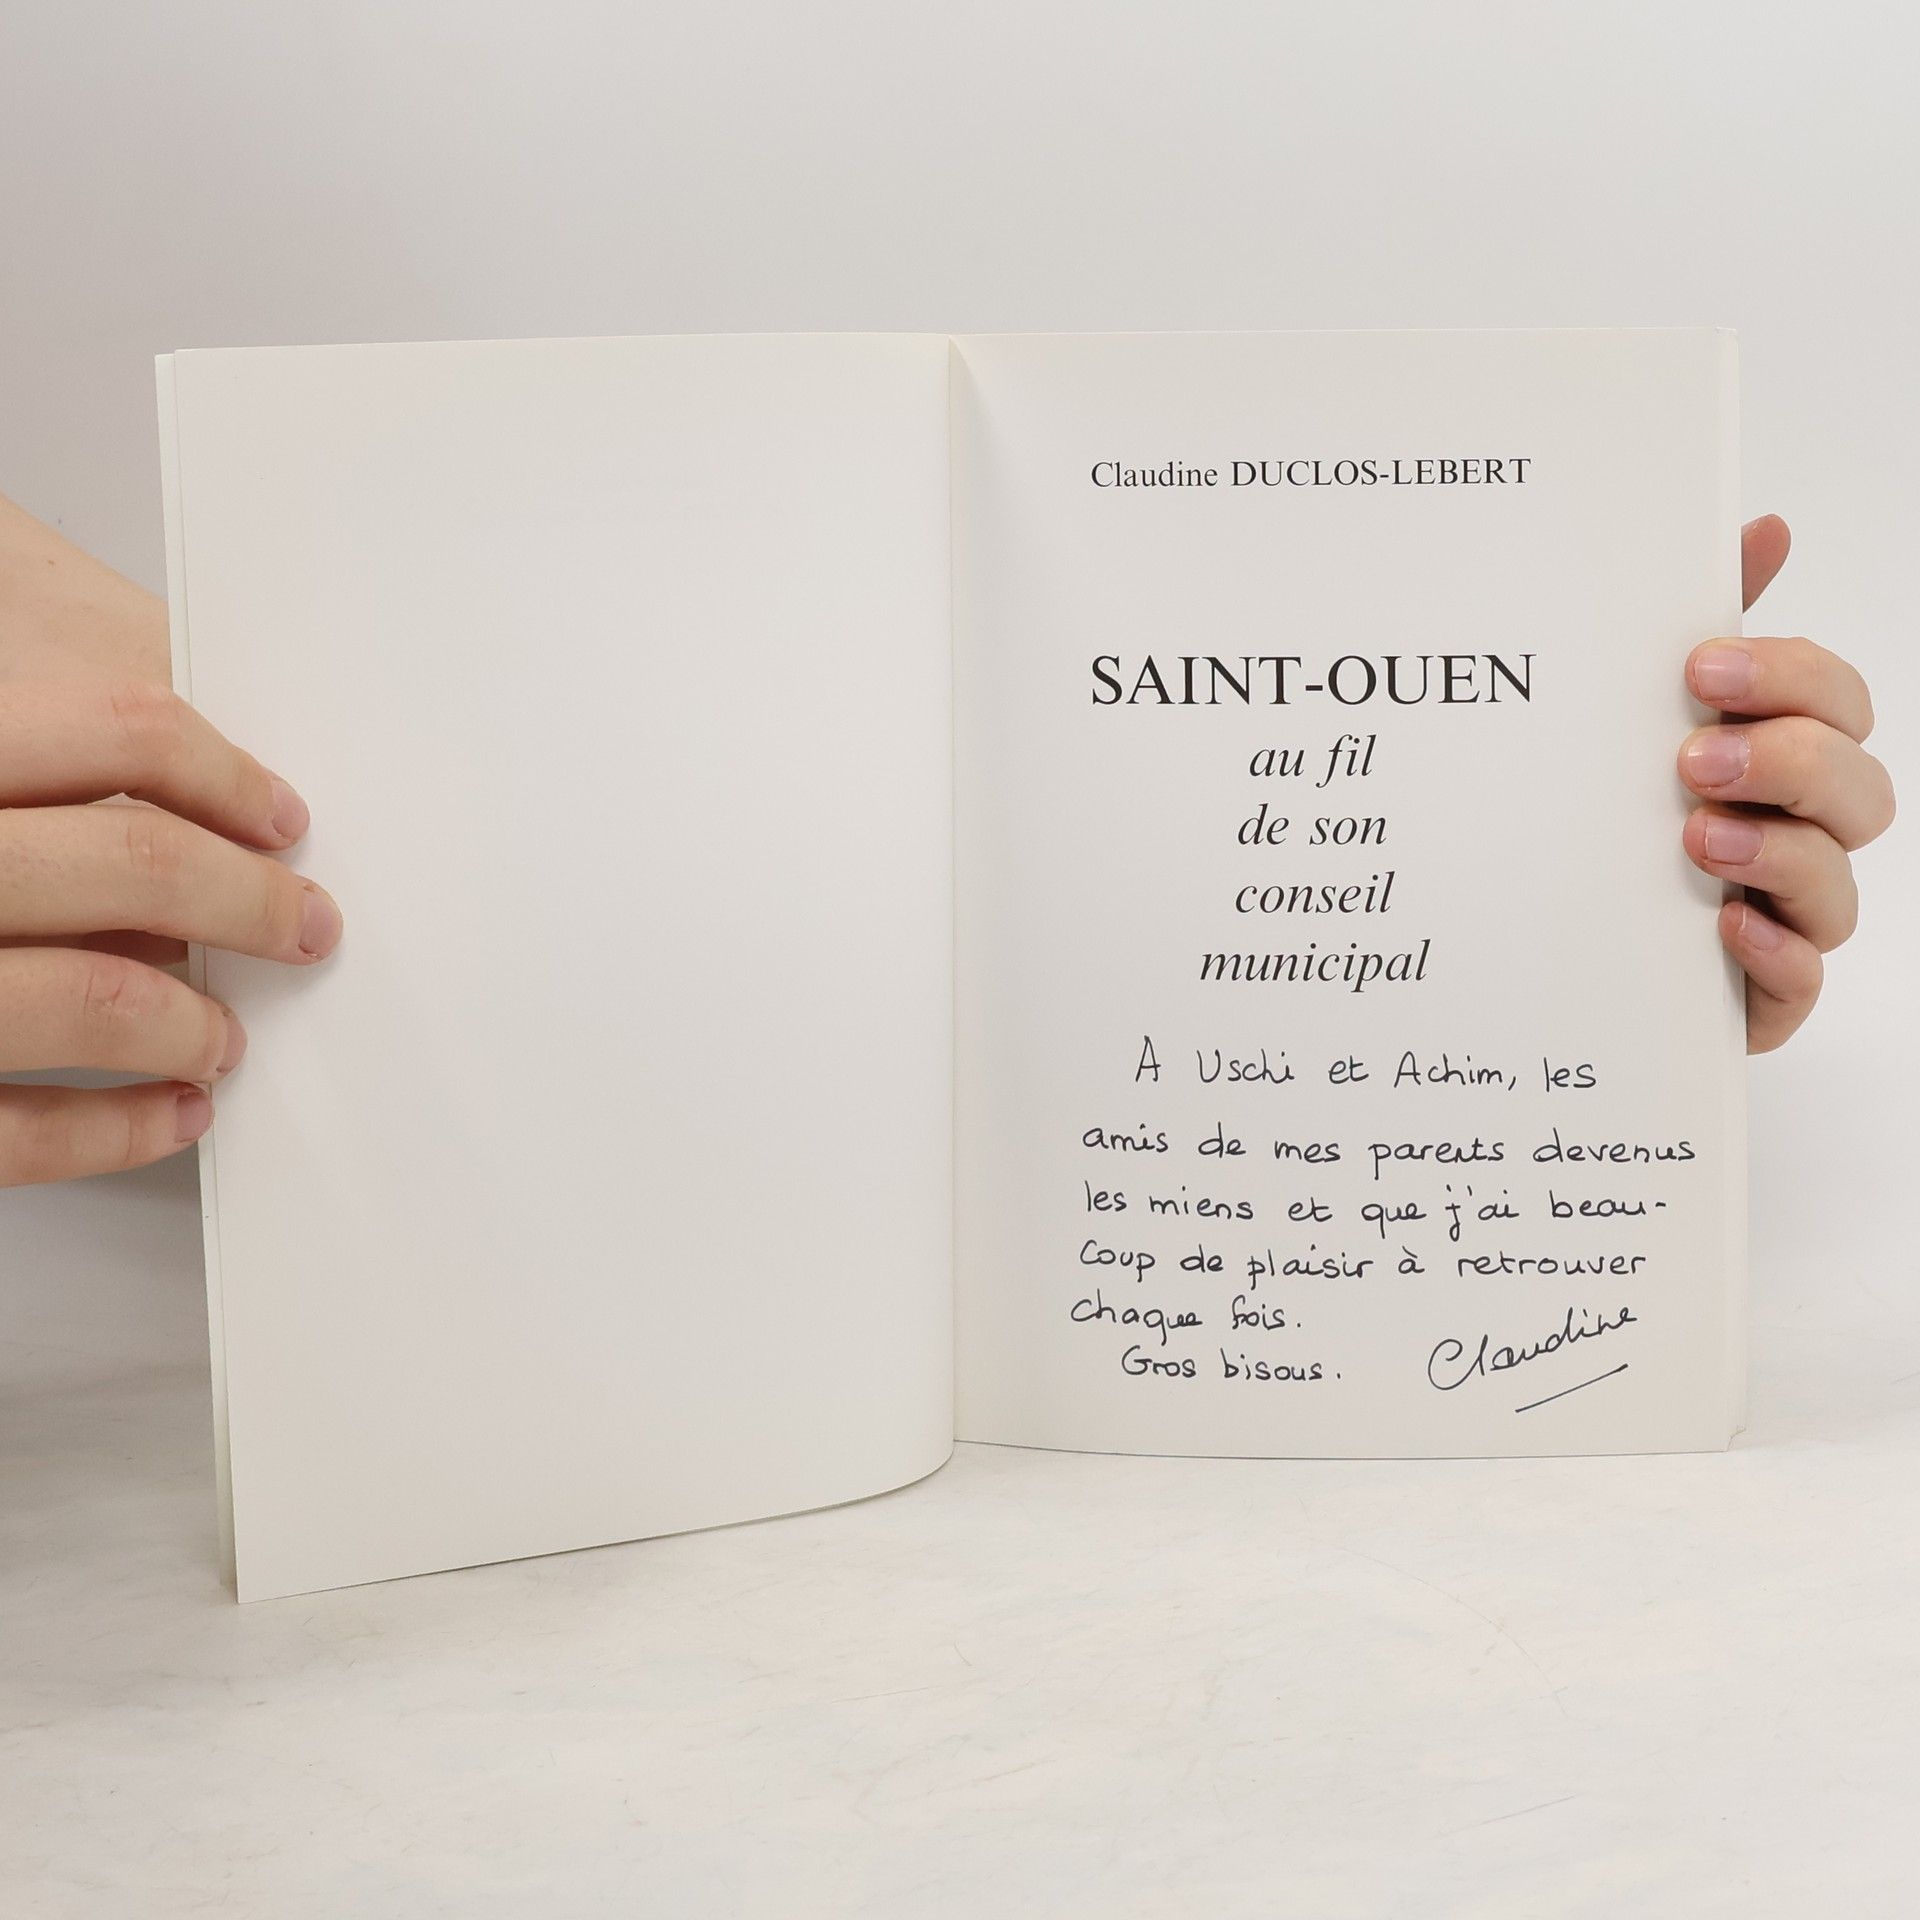 Claudine DUCLOS-LEBERT
SAINT-OUEN
au fil
de son
conseil
municipal
A Uschi et Achim, les
amis de mes parents devenus
les miens et que j'ai beau-
coup de plaisir à retrouver
chaque fois.
Gros bisous.
Claudine